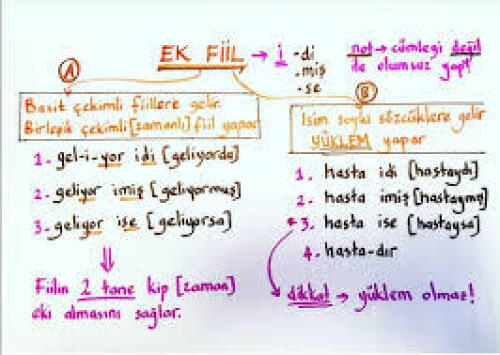 EK FİİL → i -di
-miş
-se
not → cümleyi değil
ile olumsuz yap!
A
Basit çekimli fiillere gelir.
Birleşik çekimli [zamanlı] fiil yapar
1- gel-i-yor idi [geliyordu]
2- geliyor imiş [geliyormuş]
3- geliyor ise [geliyorsa]
Fiilin 2 tane kip [zaman]
eki almasını sağlar.
B
İsim soylu sözcüklere gelir
YÜKLEM yapar
1. hasta idi [hastaydı]
2. hasta imiş [hastaymış]
3. hasta ise [hastaysa]
4. hasta-dır
dikkat → yüklem olmaz!